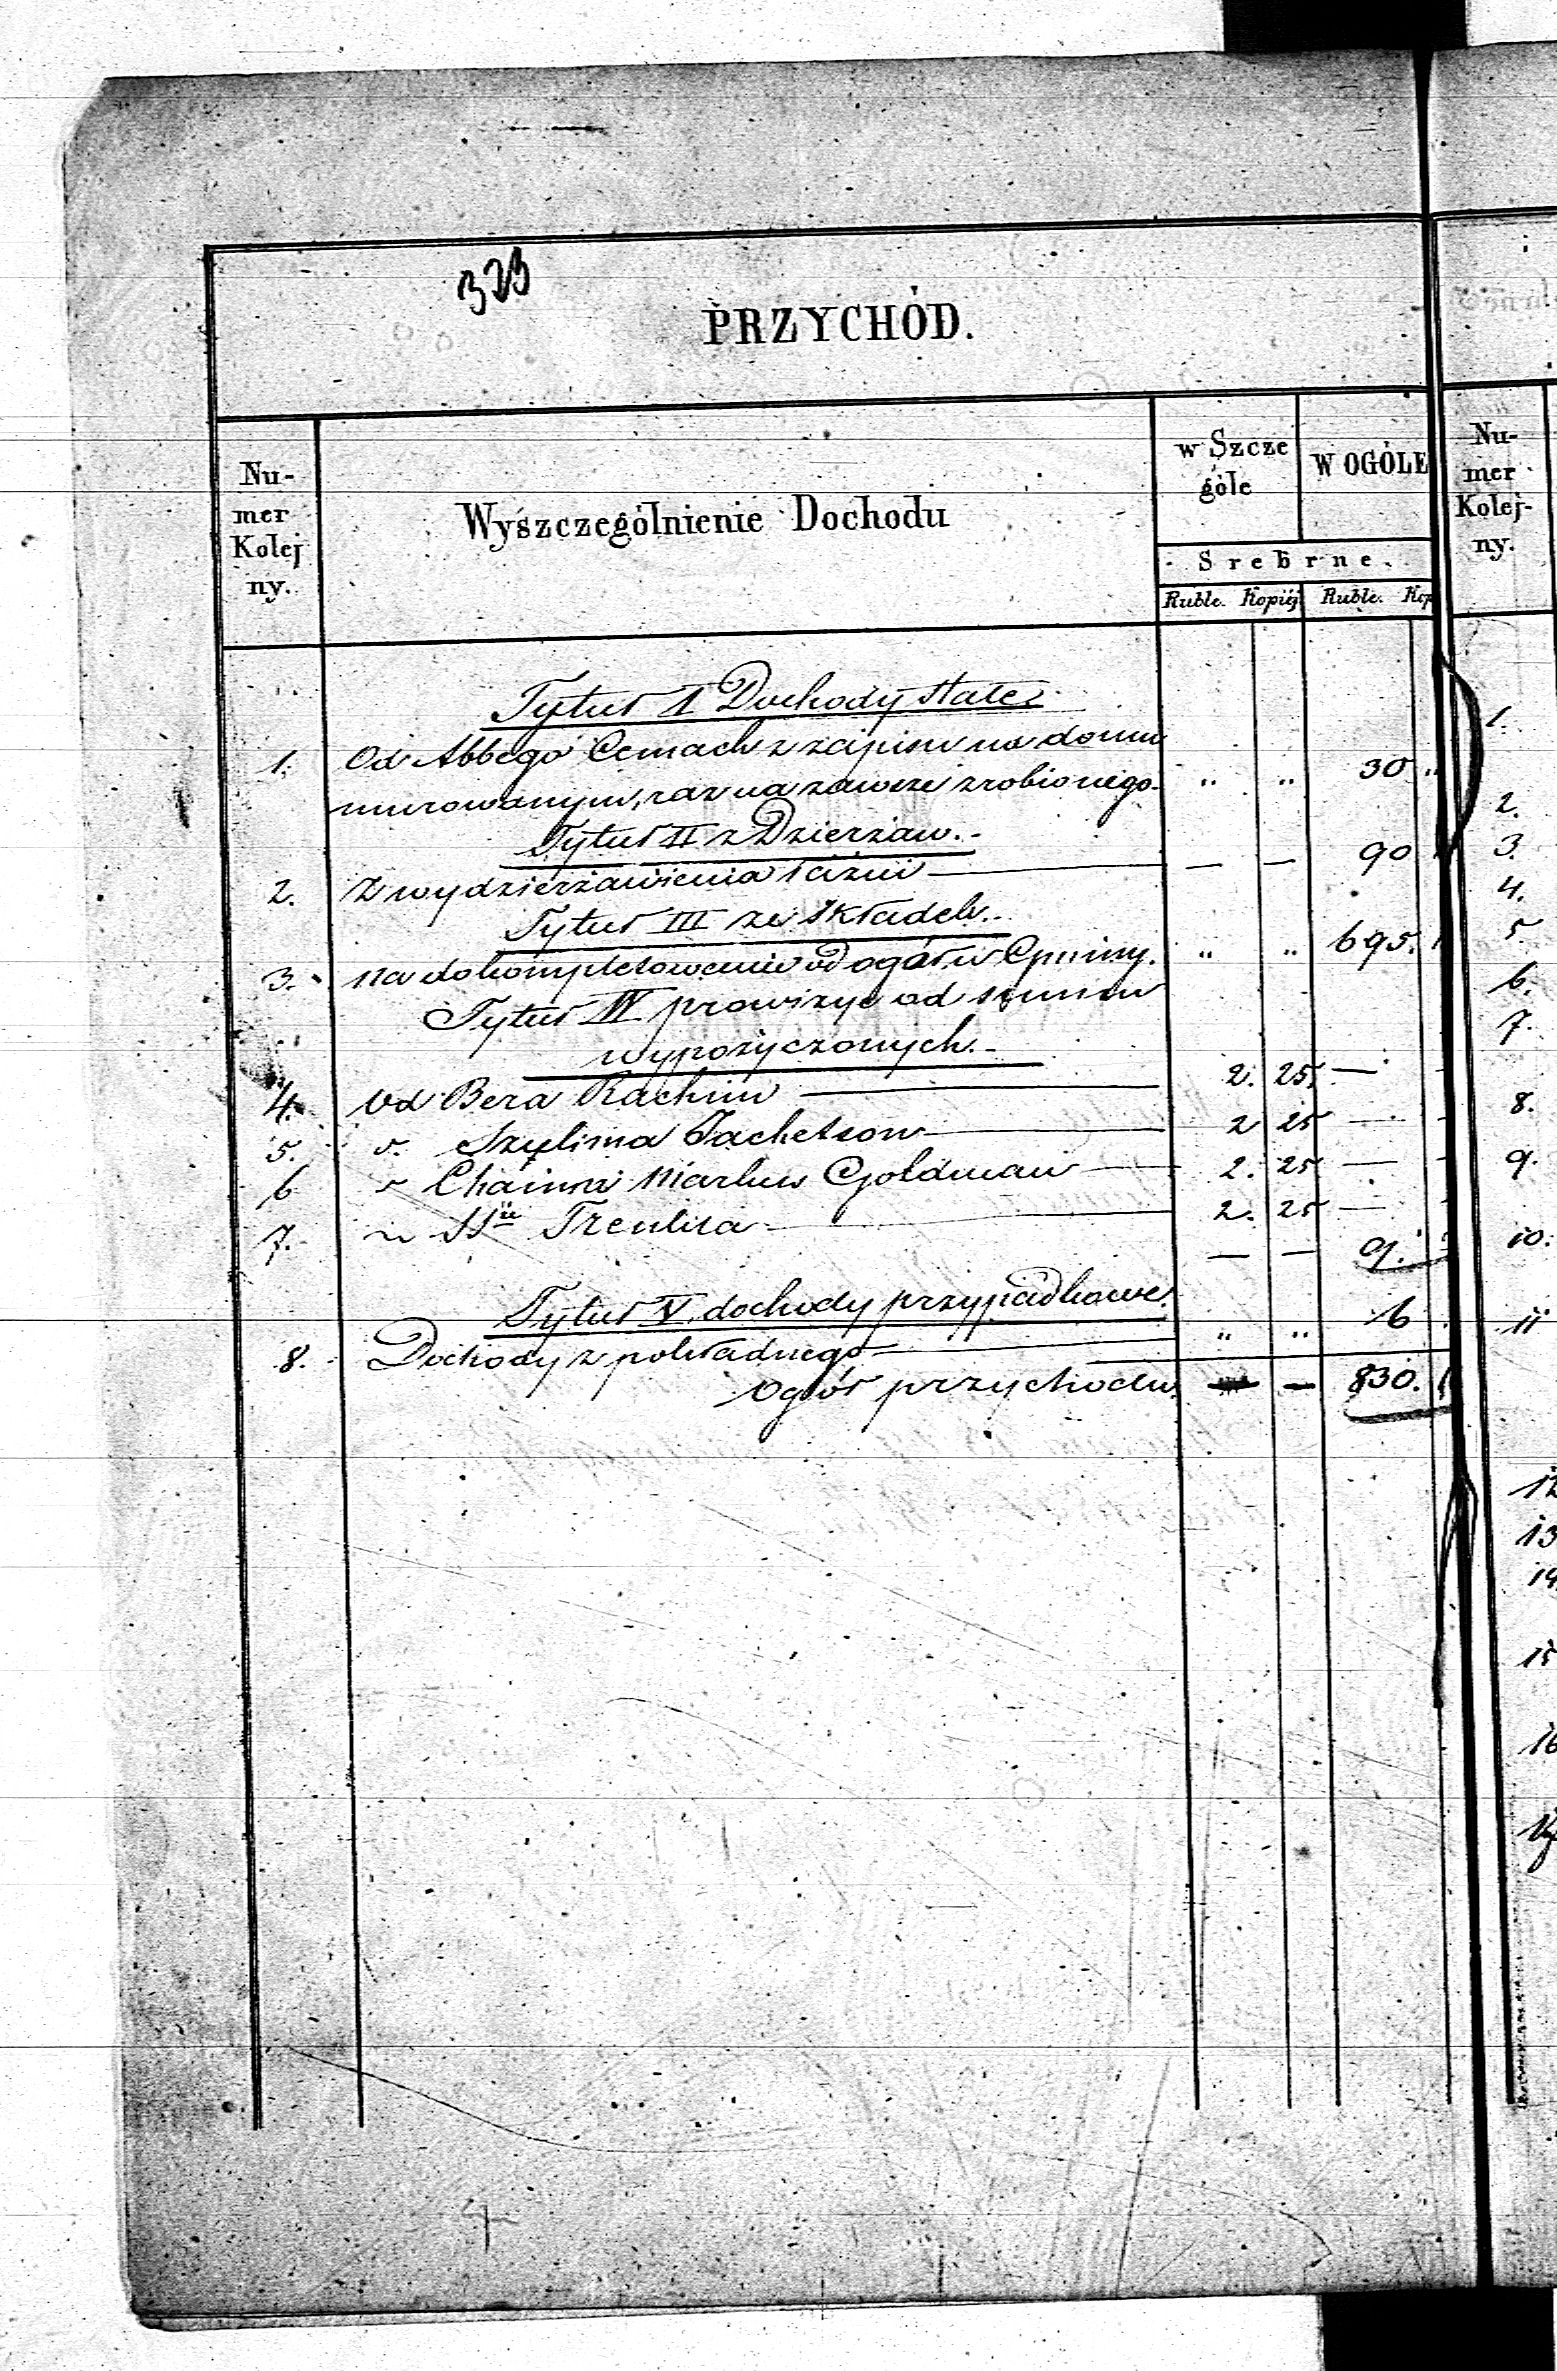 323
PRZYCHÓD.
Nu-
mer
Kolej
ny.
Wyszczególnienie Dochodu
w Szcze
góle
W OGÓLE
Srebrne.
Ruble. Kopiej Ruble. Kop
Tytuł I Dochody stałe
1. Od Abbego Cemach z zapisu na domu
murowanym, raz na zawsze zrobionego " " 30 "
Tytuł II z Dzierżaw.
2. Z wydzierżawienia łaźni — — 90
Tytuł III ze składek.
3. na dokompletowanie od ogółu Gminy. " " 695.
Tytuł IV prowizye od summ
wypożyczonych.
4. Od Bera Rachim 2. 25. —
5. Szylima 2 25 —
6 Chaima Markus Goldman 2. 25 —
7. 2. 25 —
— — 9.
Tytuł V. dochody przypadkowe.
8. Dochody z pokładnego " " 6
Ogół przychodu — — 830.
Nu-
mer
Kolej-
ny.
1.
2.
3.
4.
5.
6.
7.
8.
9.
10.
11
12
13
14
15
16
17